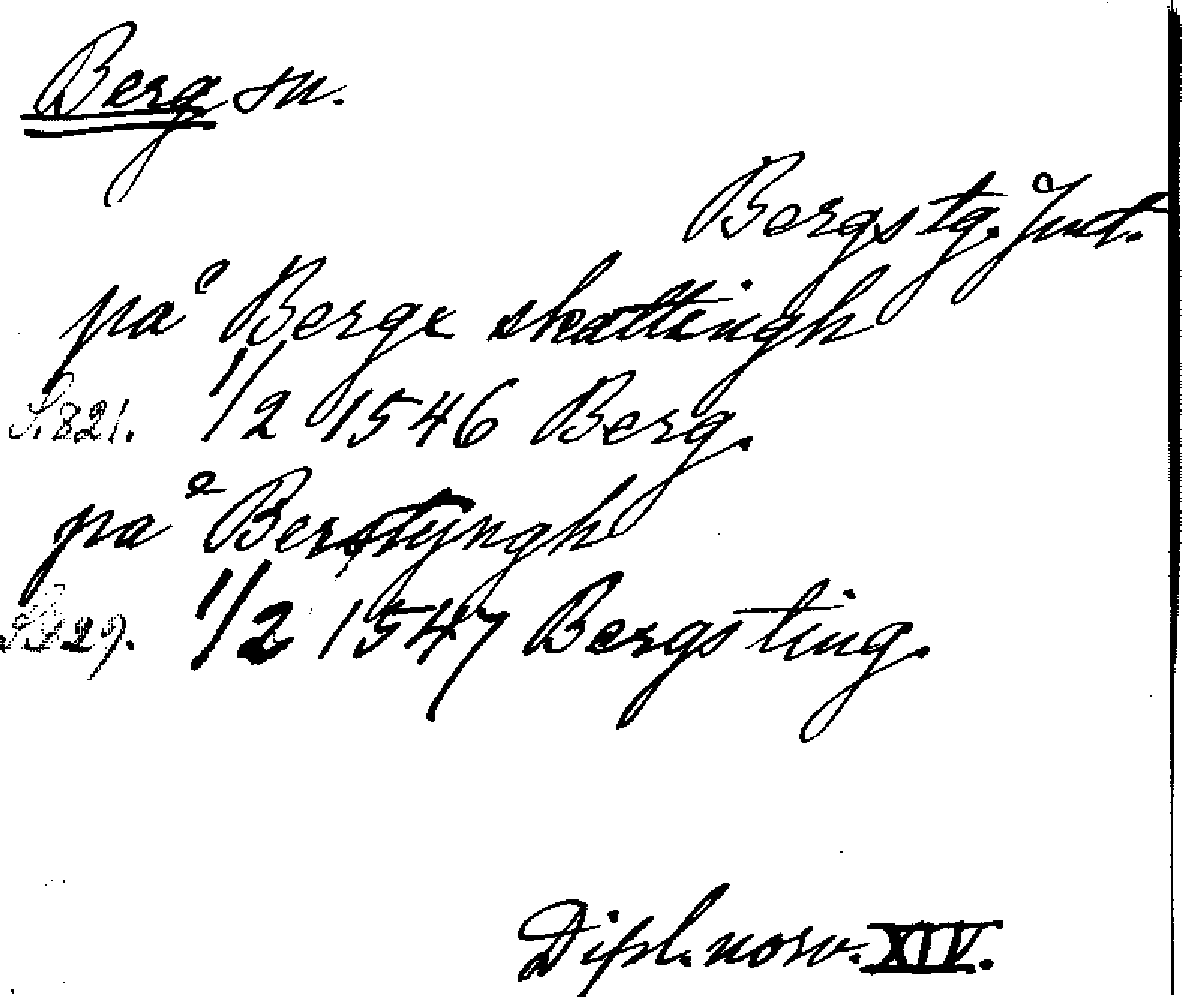 Berg sn.
Bergs tg. Jmt.
på Berge skattingh
S. 821. 1/2 1546 Berg.
på Berstyngh
S. 829. 1/2 1547 Bergs ting.
Dipl. norv. XIV.